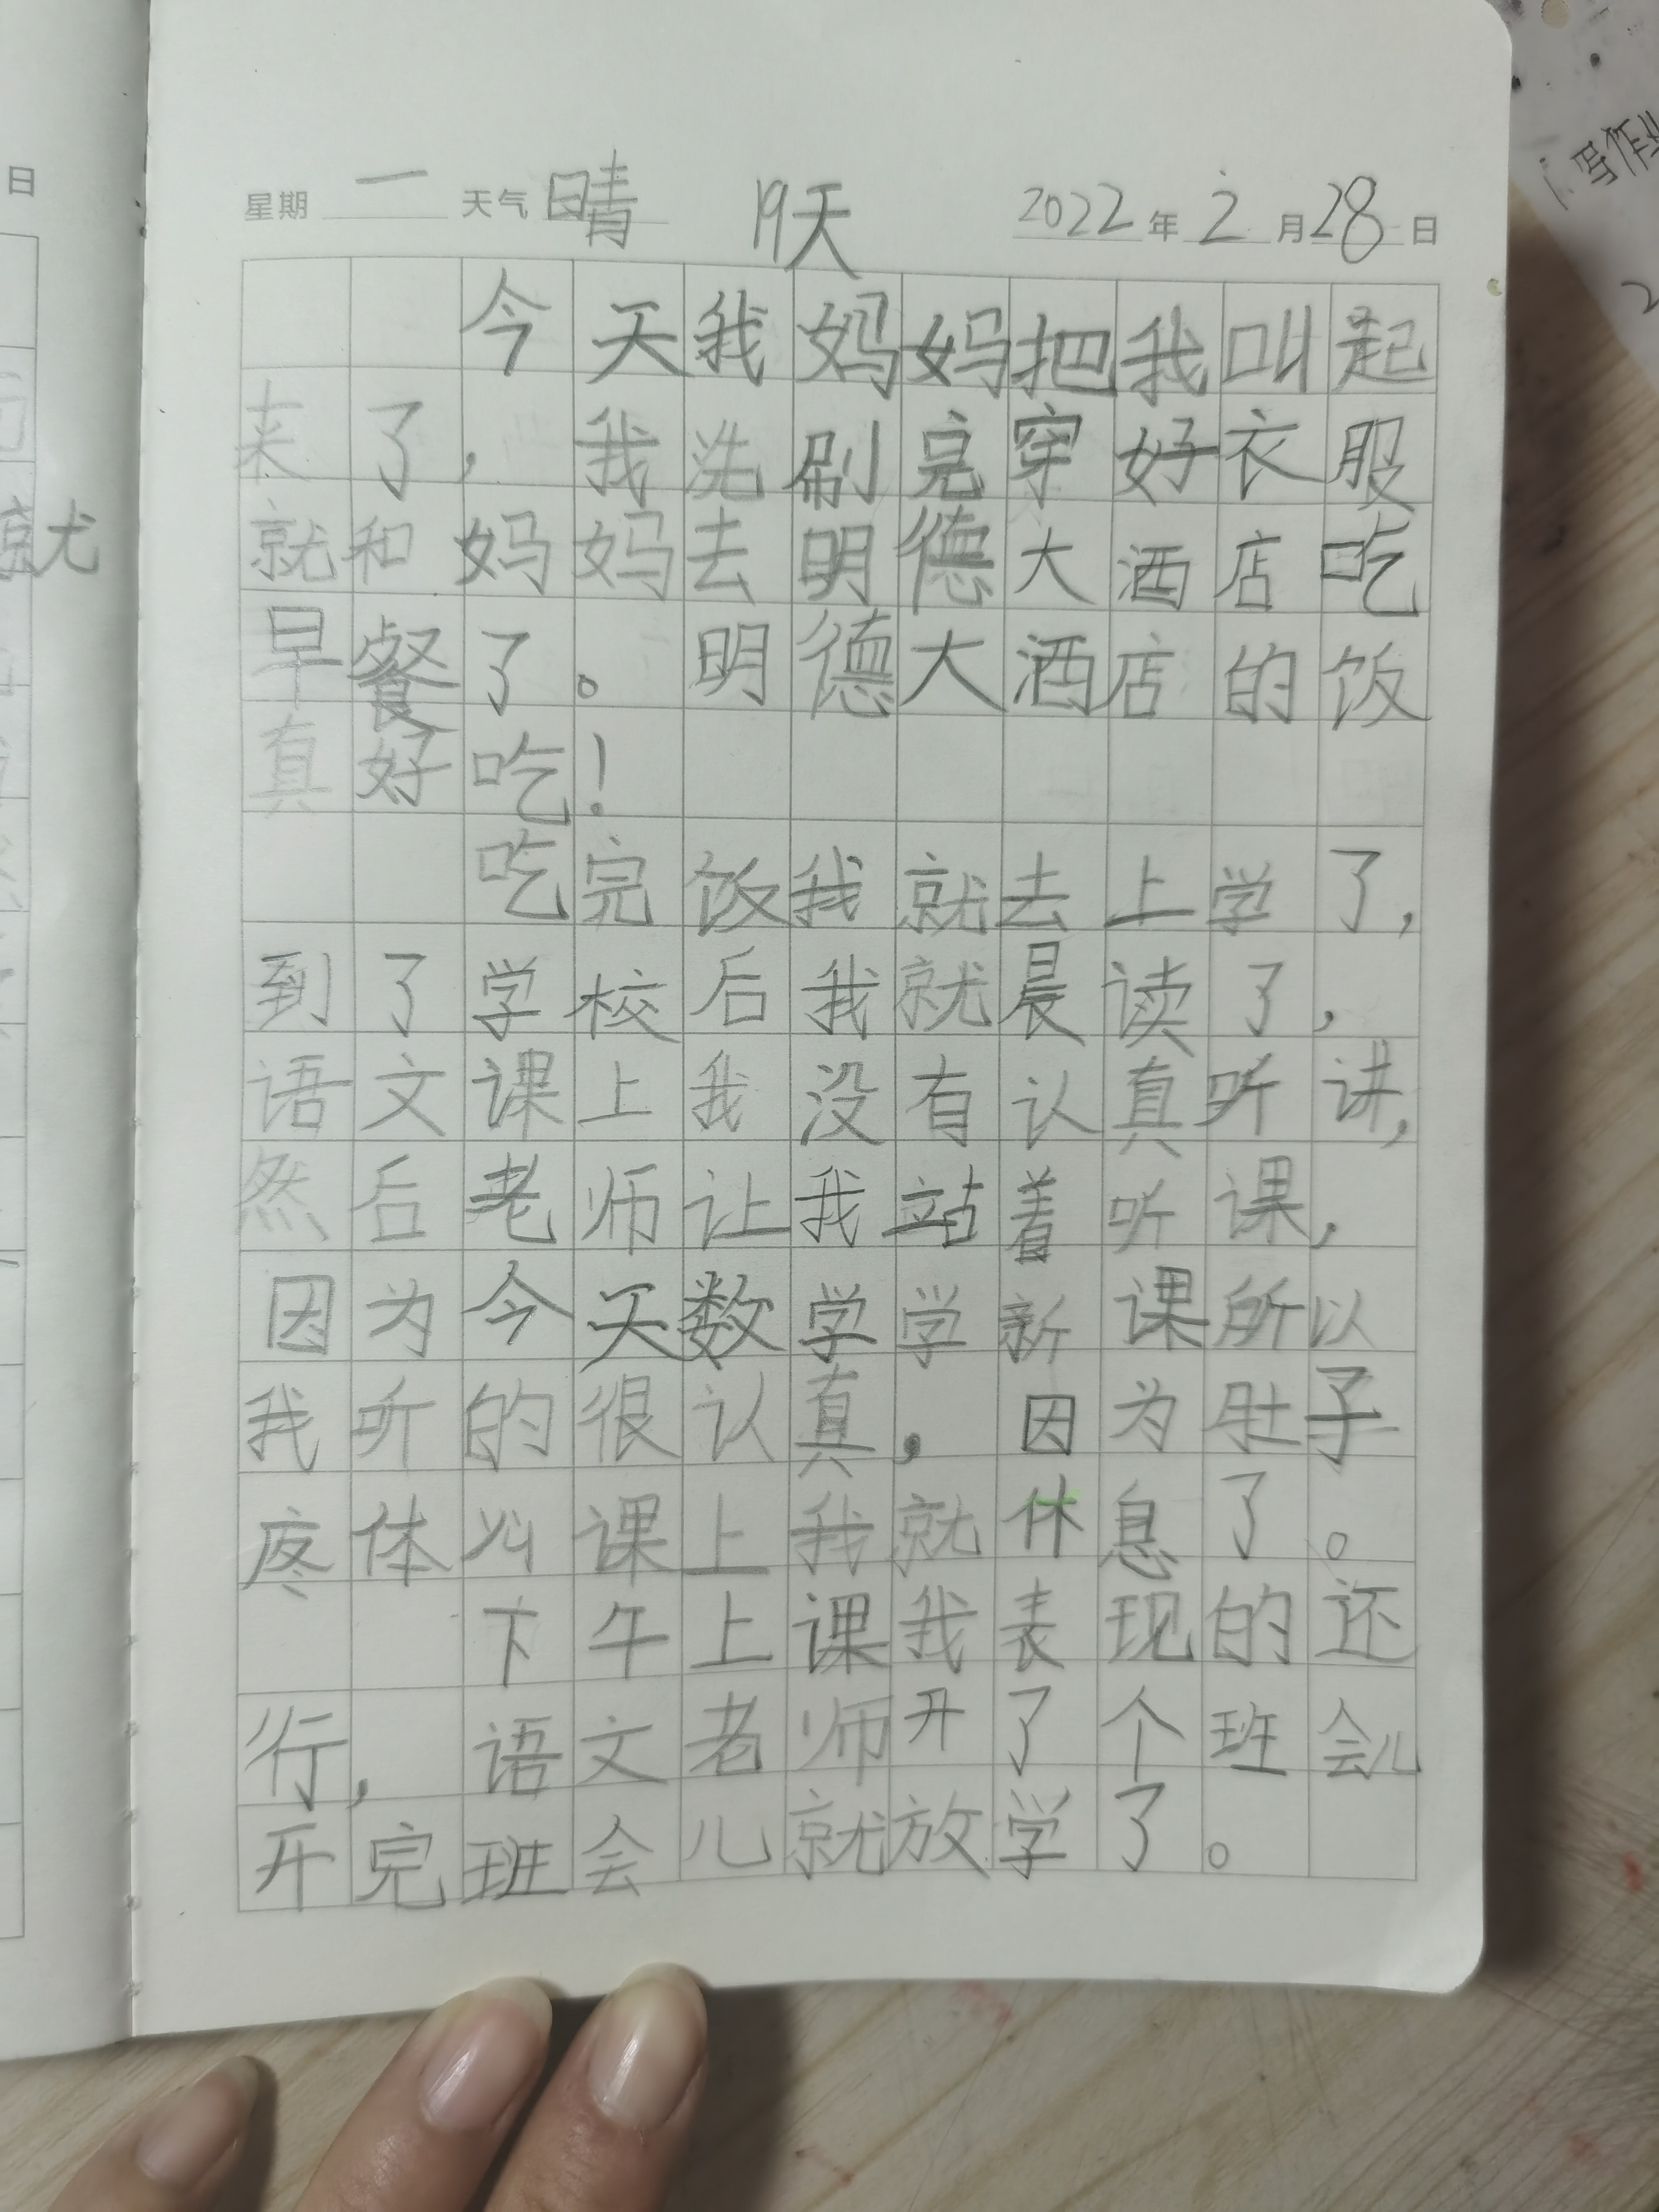 日
就
星期 一 天气 晴 19天 2022 年 2 月 28 日
今天我妈妈把我叫起
来了，我洗刷完穿好衣服
就和妈妈去明德大酒店吃
早餐了。明德大酒店的饭
真好吃！
吃完饭我就去上学了，
到了学校后我就晨读了，
语文课上我没有认真听讲，
然后老师让我站着听课，
因为今天数学学新课所以
我听的很认真，因为肚子
疼体以课上我就休息了。
下午上课我表现的还
行，语文老师开了个班会儿
开完班会儿就放学了。
1.写作业
2